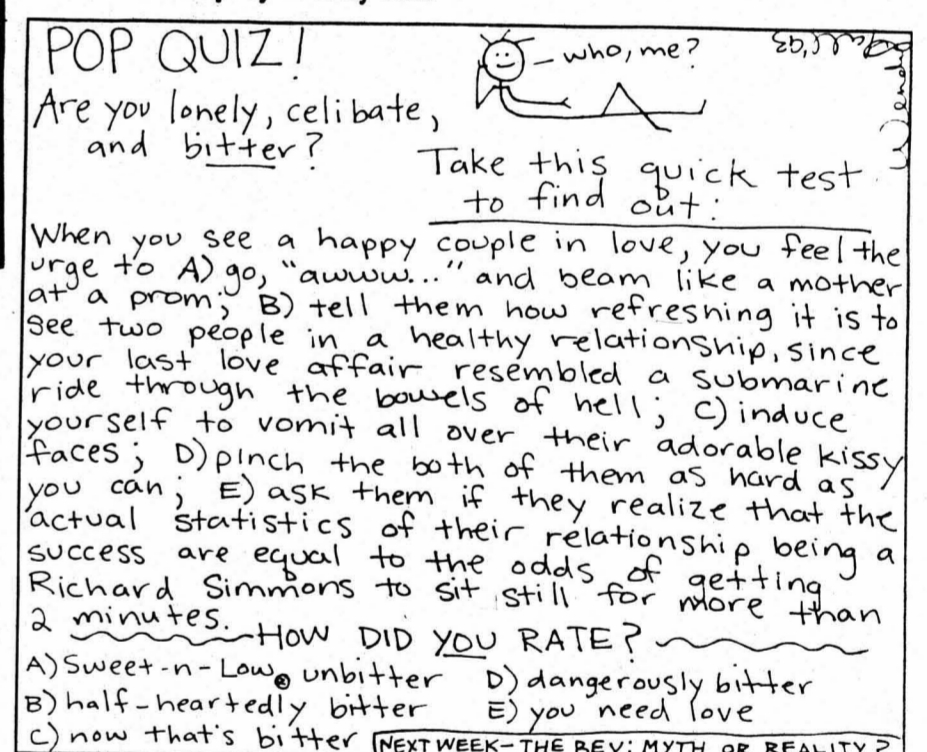 POP QUIZ!
— who, me?
Are you lonely, celibate,
and bitter?
Take this quick test
to find out:
When you see a happy couple in love, you feel the
urge to A) go, "awww..." and beam like a mother
at a prom; B) tell them how refreshing it is to
see two people in a healthy relationship, since
your last love affair resembled a submarine
ride through the bowels of hell; C) induce
yourself to vomit all over their adorable kissy
faces; D) pinch the both of them as hard as
you can; E) ask them if they realize that the
actual statistics of their relationship being a
success are equal to the odds of getting
Richard Simmons to sit still for more than
2 minutes.
HOW DID YOU RATE?
A) Sweet-n-Low® unbitter
B) half-heartedly bitter
C) now that's bitter
D) dangerously bitter
E) you need love
NEXT WEEK— THE BEV: MYTH OR REALITY?